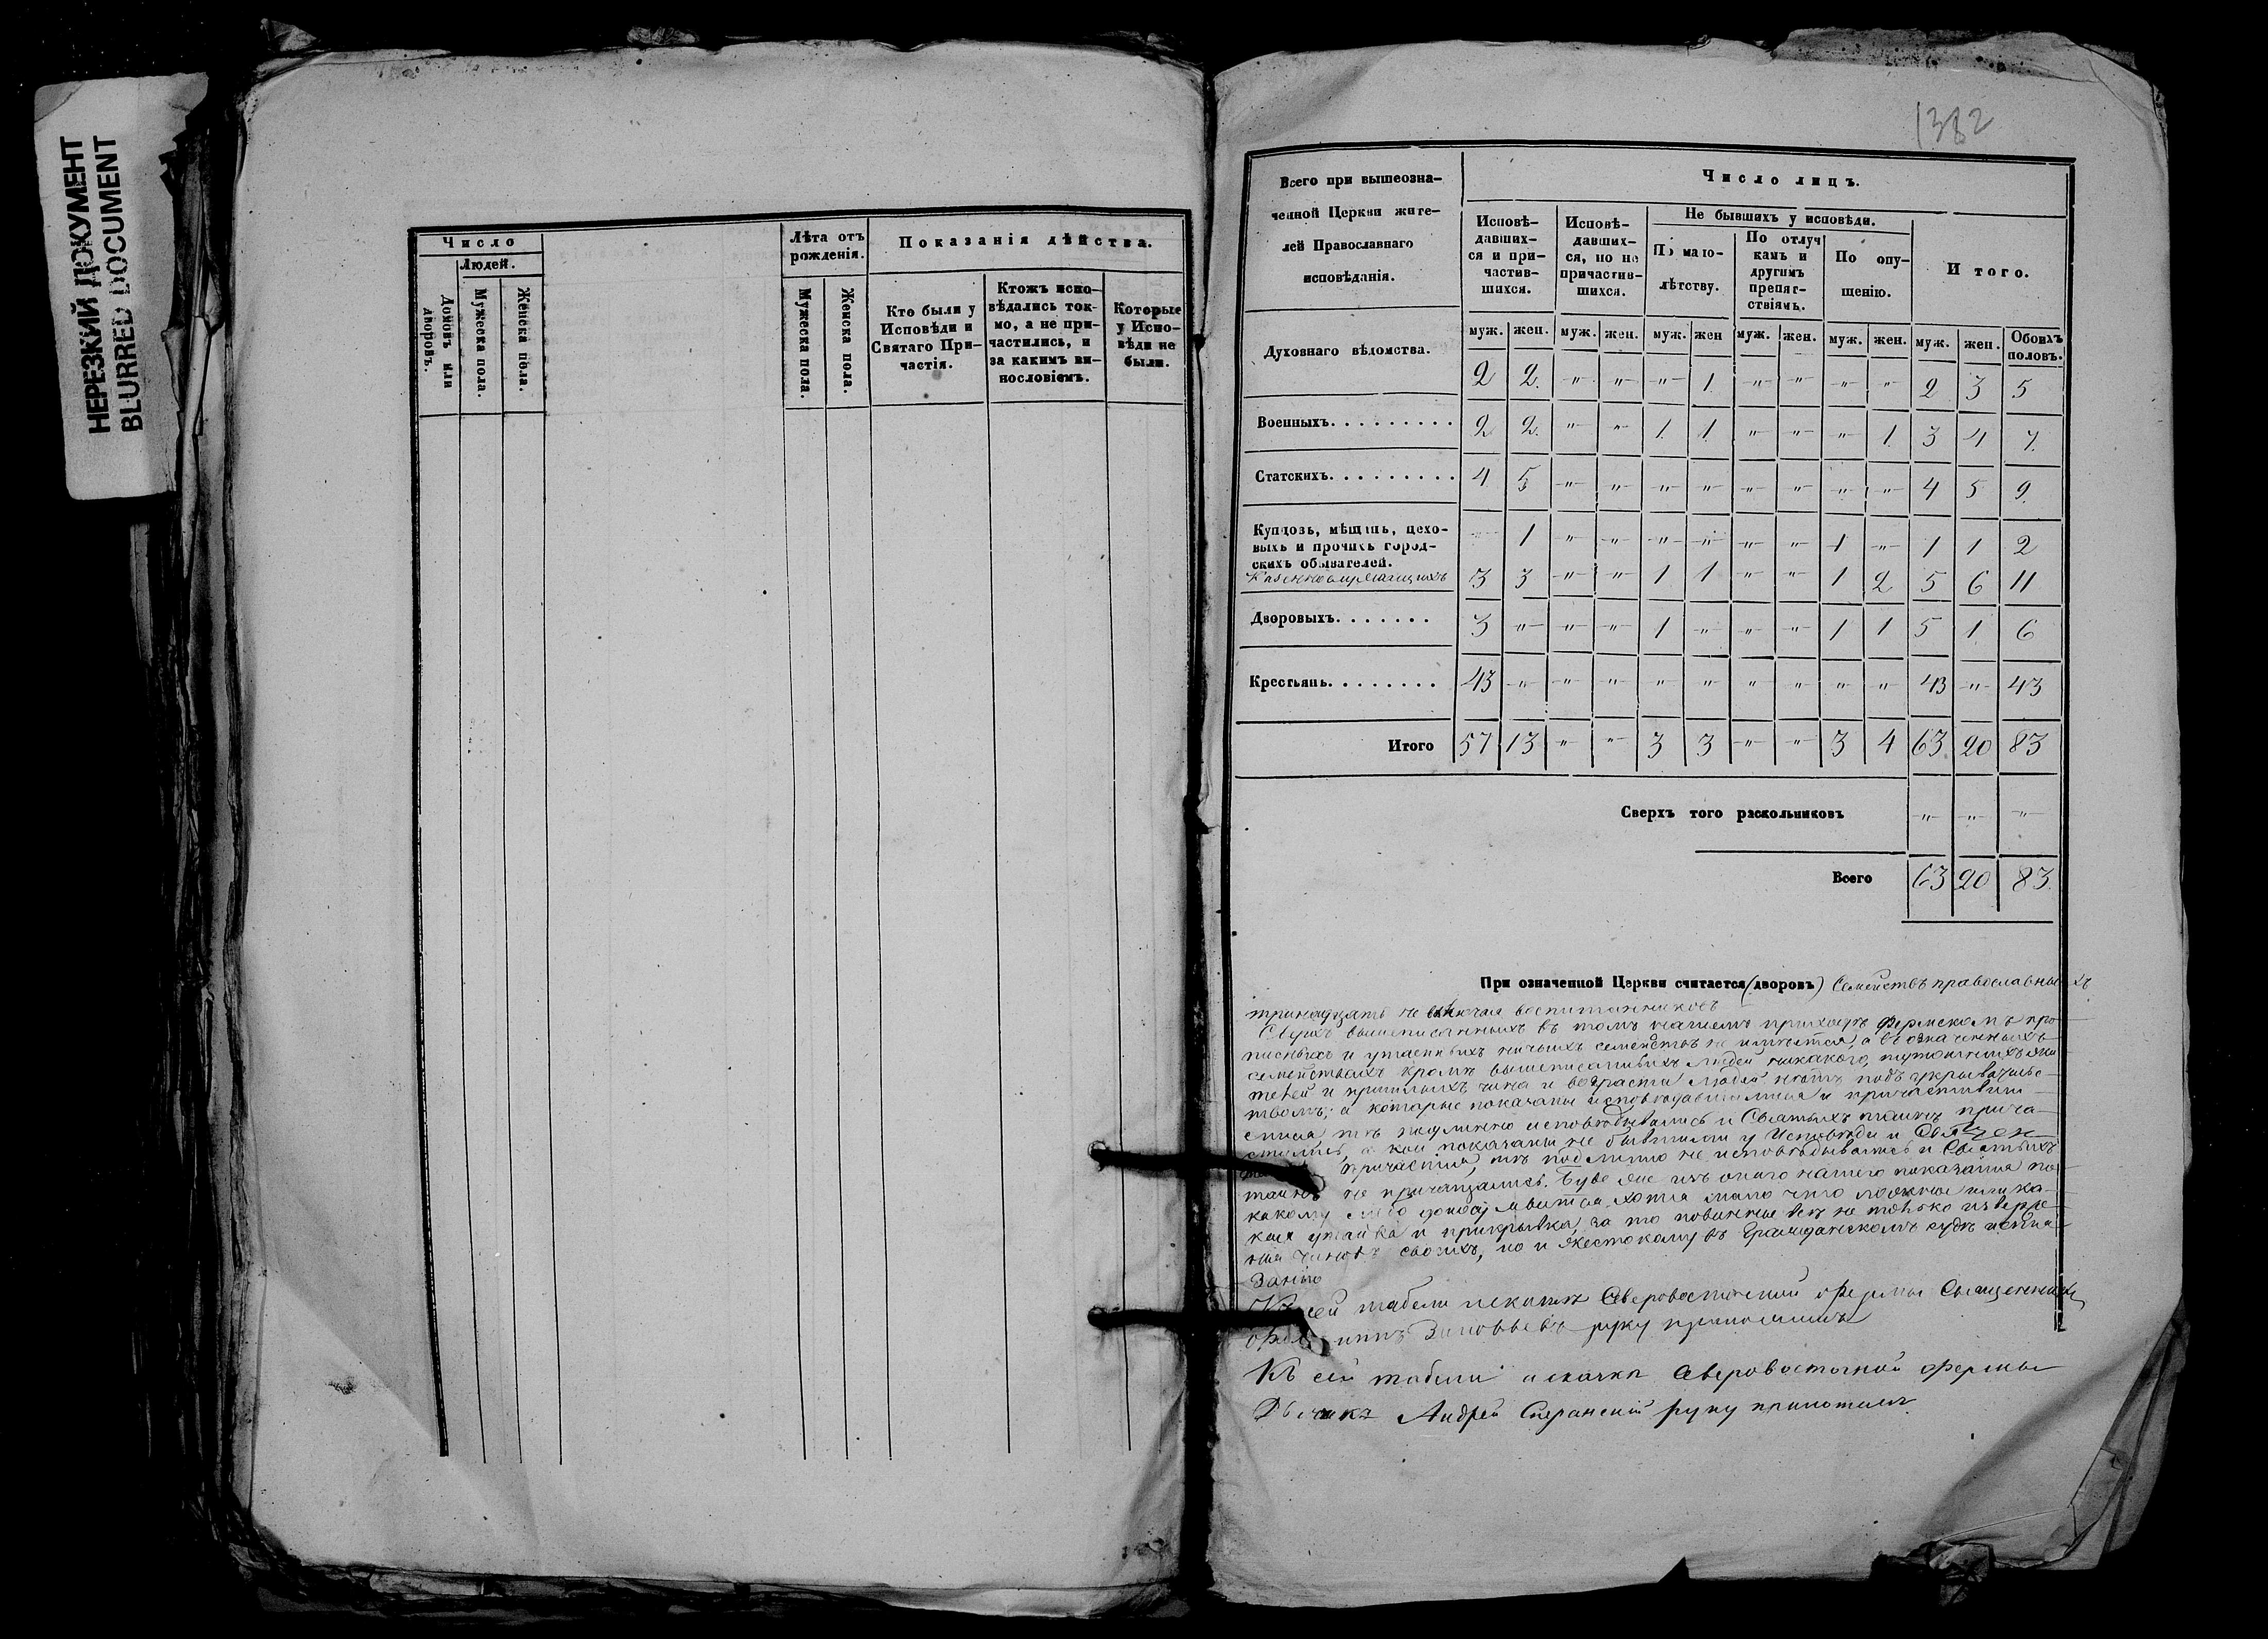 НЕРЕЗКИЙ ДОКУМЕНТ
BLURRED DOCUMENT
Число
Людей.
Домовъ или дворовъ.
Мужеска пола.
Женска пола.
Лѣта отъ рожденія.
Мужеска пола.
Женска пола.
Показанія дѣйства.
Кто были у Исповѣди и Святаго При-
частія.
Ктожъ испо-
вѣдались ток-
мо, а не при-
частились, и
за какимъ ви-
нословіемъ.
Которые
у Испо-
вѣди не
были.
1382
Всего при вышеозна-
ченной Церкви жите-
лей Православнаго
исповѣданія.
Число лицъ.
Исповѣ-
давших-
ся и при-
частив-
шихся.
Исповѣ-
давших-
ся, но не
причастив-
шихся.
Не бывшихъ у исповѣди.
По мало-
лѣтству.
По отлуч
камъ и
другимъ
препят-
ствіямъ.
По опу-
щенію.
Итого.
муж. жен. муж. жен. муж. жен муж. жен. муж. жен. муж. жен. Обоихъ половъ.
Духовнаго вѣдомства. 2 2. " " " 1 " " " " 2 3 5
Военныхъ......... 2 2. " " 1 1 " " " 1 3 4 7.
Статскихъ......... 4 5 " " " " " " " " 4 5 9.
Купцовъ, мѣщанъ, цехо-
выхъ и прочихъ город-
скихъ обывателей. " 1 " " " " " " 1 " 1 1 2
3 3 " " 1 1 " " 1 2 5 6 11
Дворовыхъ....... 3 " " " 1 " " " 1 1 5 1 6
Крестьянъ........ 43 " " " " " " " " " 43 " 43
Итого 57 13 " " 3 3 " " 3 4 63 20 83
Сверхъ того раскольниковъ " " "
Всего 63 20 83.
При означенной Церкви считается (дворовъ) Семействъ православныхъ
тринадцать не включая воспитанниковъ
Сверхъ вышеписанныхъ въ томъ нашемъ приходѣ Фермскомъ про-
писныхъ и утаенныхъ ничьихъ семействъ не имѣется, а въ означенныхъ
семействахъ кромѣ вышеписанныхъ людей никакого,
и пришлыхъ чина и возраста людей нѣтъ подъ укрыватель-
ствомъ; а которые показаны исповѣдавшимися и причастивши-
мися тѣ подлинно исповѣдывались и Святыхъ таинъ прича-
стились, а кои показаны не бывшими у Исповѣди и
причастія, тѣ подлинно не исповѣдывались и Святыхъ
таинъ не причащались. Буде же изъ онаго нашего показанія по
какому либо явится хотя мало что ложное или ка-
кая утайка и прикрывка, за то повинны всѣ не только изверже-
нія чиновъ своихъ, но и жестокому въ Гражданскомъ судѣ истя-
занію
Къ сей табели Сѣверовосточной фермы Священникъ
Зиновьевъ руку приложилъ
Къ сей табели Сѣверовосточной фермы
Дьячекъ Андрей Сперанскій руку приложилъ.